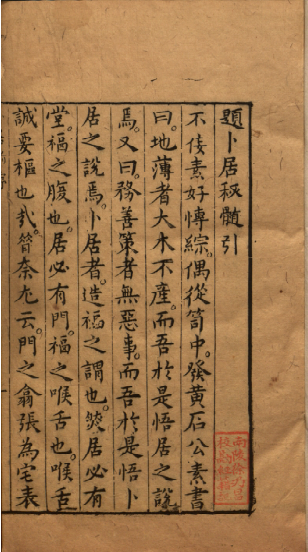 題卜居秘髓引
不佞素好博綜。偶從笥中。發黃石公素書
曰。地薄者大木不產。而吾於是悟居之說
焉。又曰。務善策者無惡事。而吾於是悟卜
居之說焉。卜居者。造福之謂也。第居必有
堂。福之腹也。居必有門。福之喉舌也。喉舌
誠要樞也哉。筲奈尢云。門之翕張為宅表